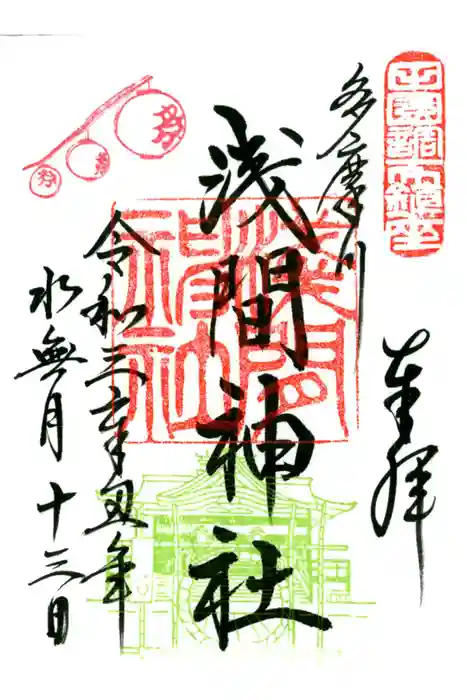 田園調布鎮座
奉拝
多摩川
浅間神社
淺間
神社
令和三辛丑年
水無月十三日
祭
祭
祭